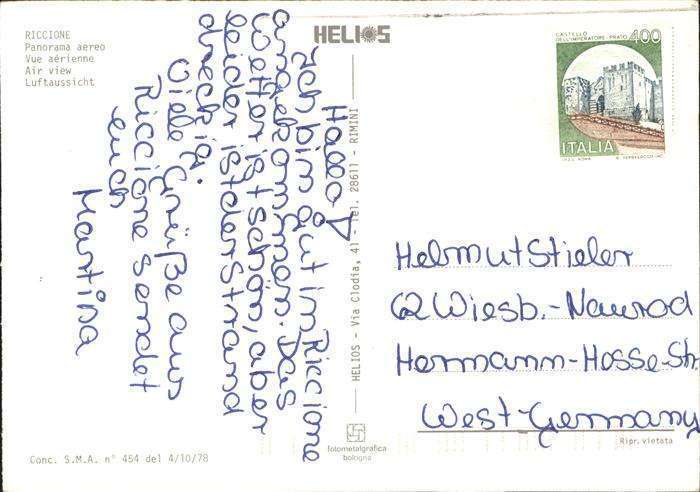 RICCIONE
Panorama aereo
Vue aérienne
Air view
Luftaussicht
HELIOS
CASTELLO
DELL'IMPERATORE-PRATO
400
ITALIA
Hallo!
Ich bin gut in Riccione
angekommen. Das
Wetter ist schön, aber
leider ist der Strand
dreckig.
Viele Grüße aus
Riccione sendet
euch
Martina
HELIOS - Via Clodia, 41 - Tel. 28611 - RIMINI
Helmut Stieler
62 Wiesb.-Naurod
Hermann-Hesse-Str.
West-Germany
fotometalgrafica
bologna
Ripr. vietata
Conc. S.M.A. n° 454 del 4/10/78